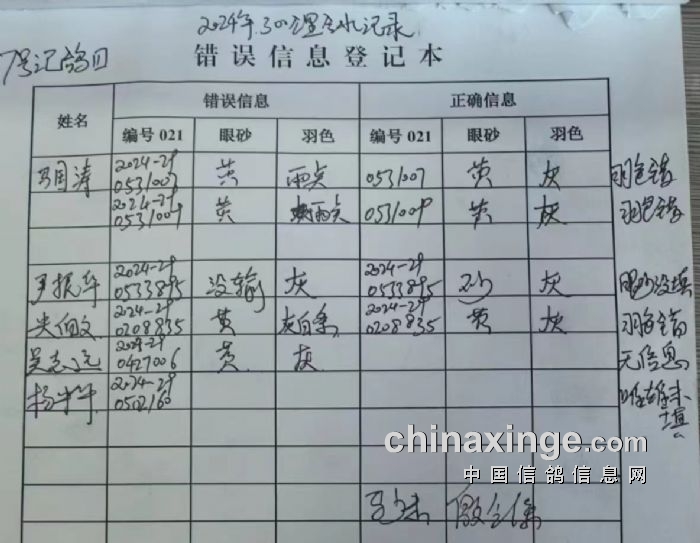 2024年300 记录
7号记鸽日
错误信息登记本
姓名 错误信息 正确信息
编号 021 眼砂 羽色 编号 021 眼砂 羽色
马国涛 2024-29 0531007 黄 雨点 0531007 黄 灰 羽色错
2024-29 0531009 黄 雨点 0531009 黄 灰 羽色错
2024-29 0533895 没输 灰 2024-29 0533895 砂 灰 眼砂没填
2024-29 0208835 黄 灰白条 2024-29 0208835 黄 灰 羽色错
2024-29 0427006 黄 灰 无信息
杨 2024-29 0502160 雌雄未填
chinaxinge.com
中国信鸽信息网